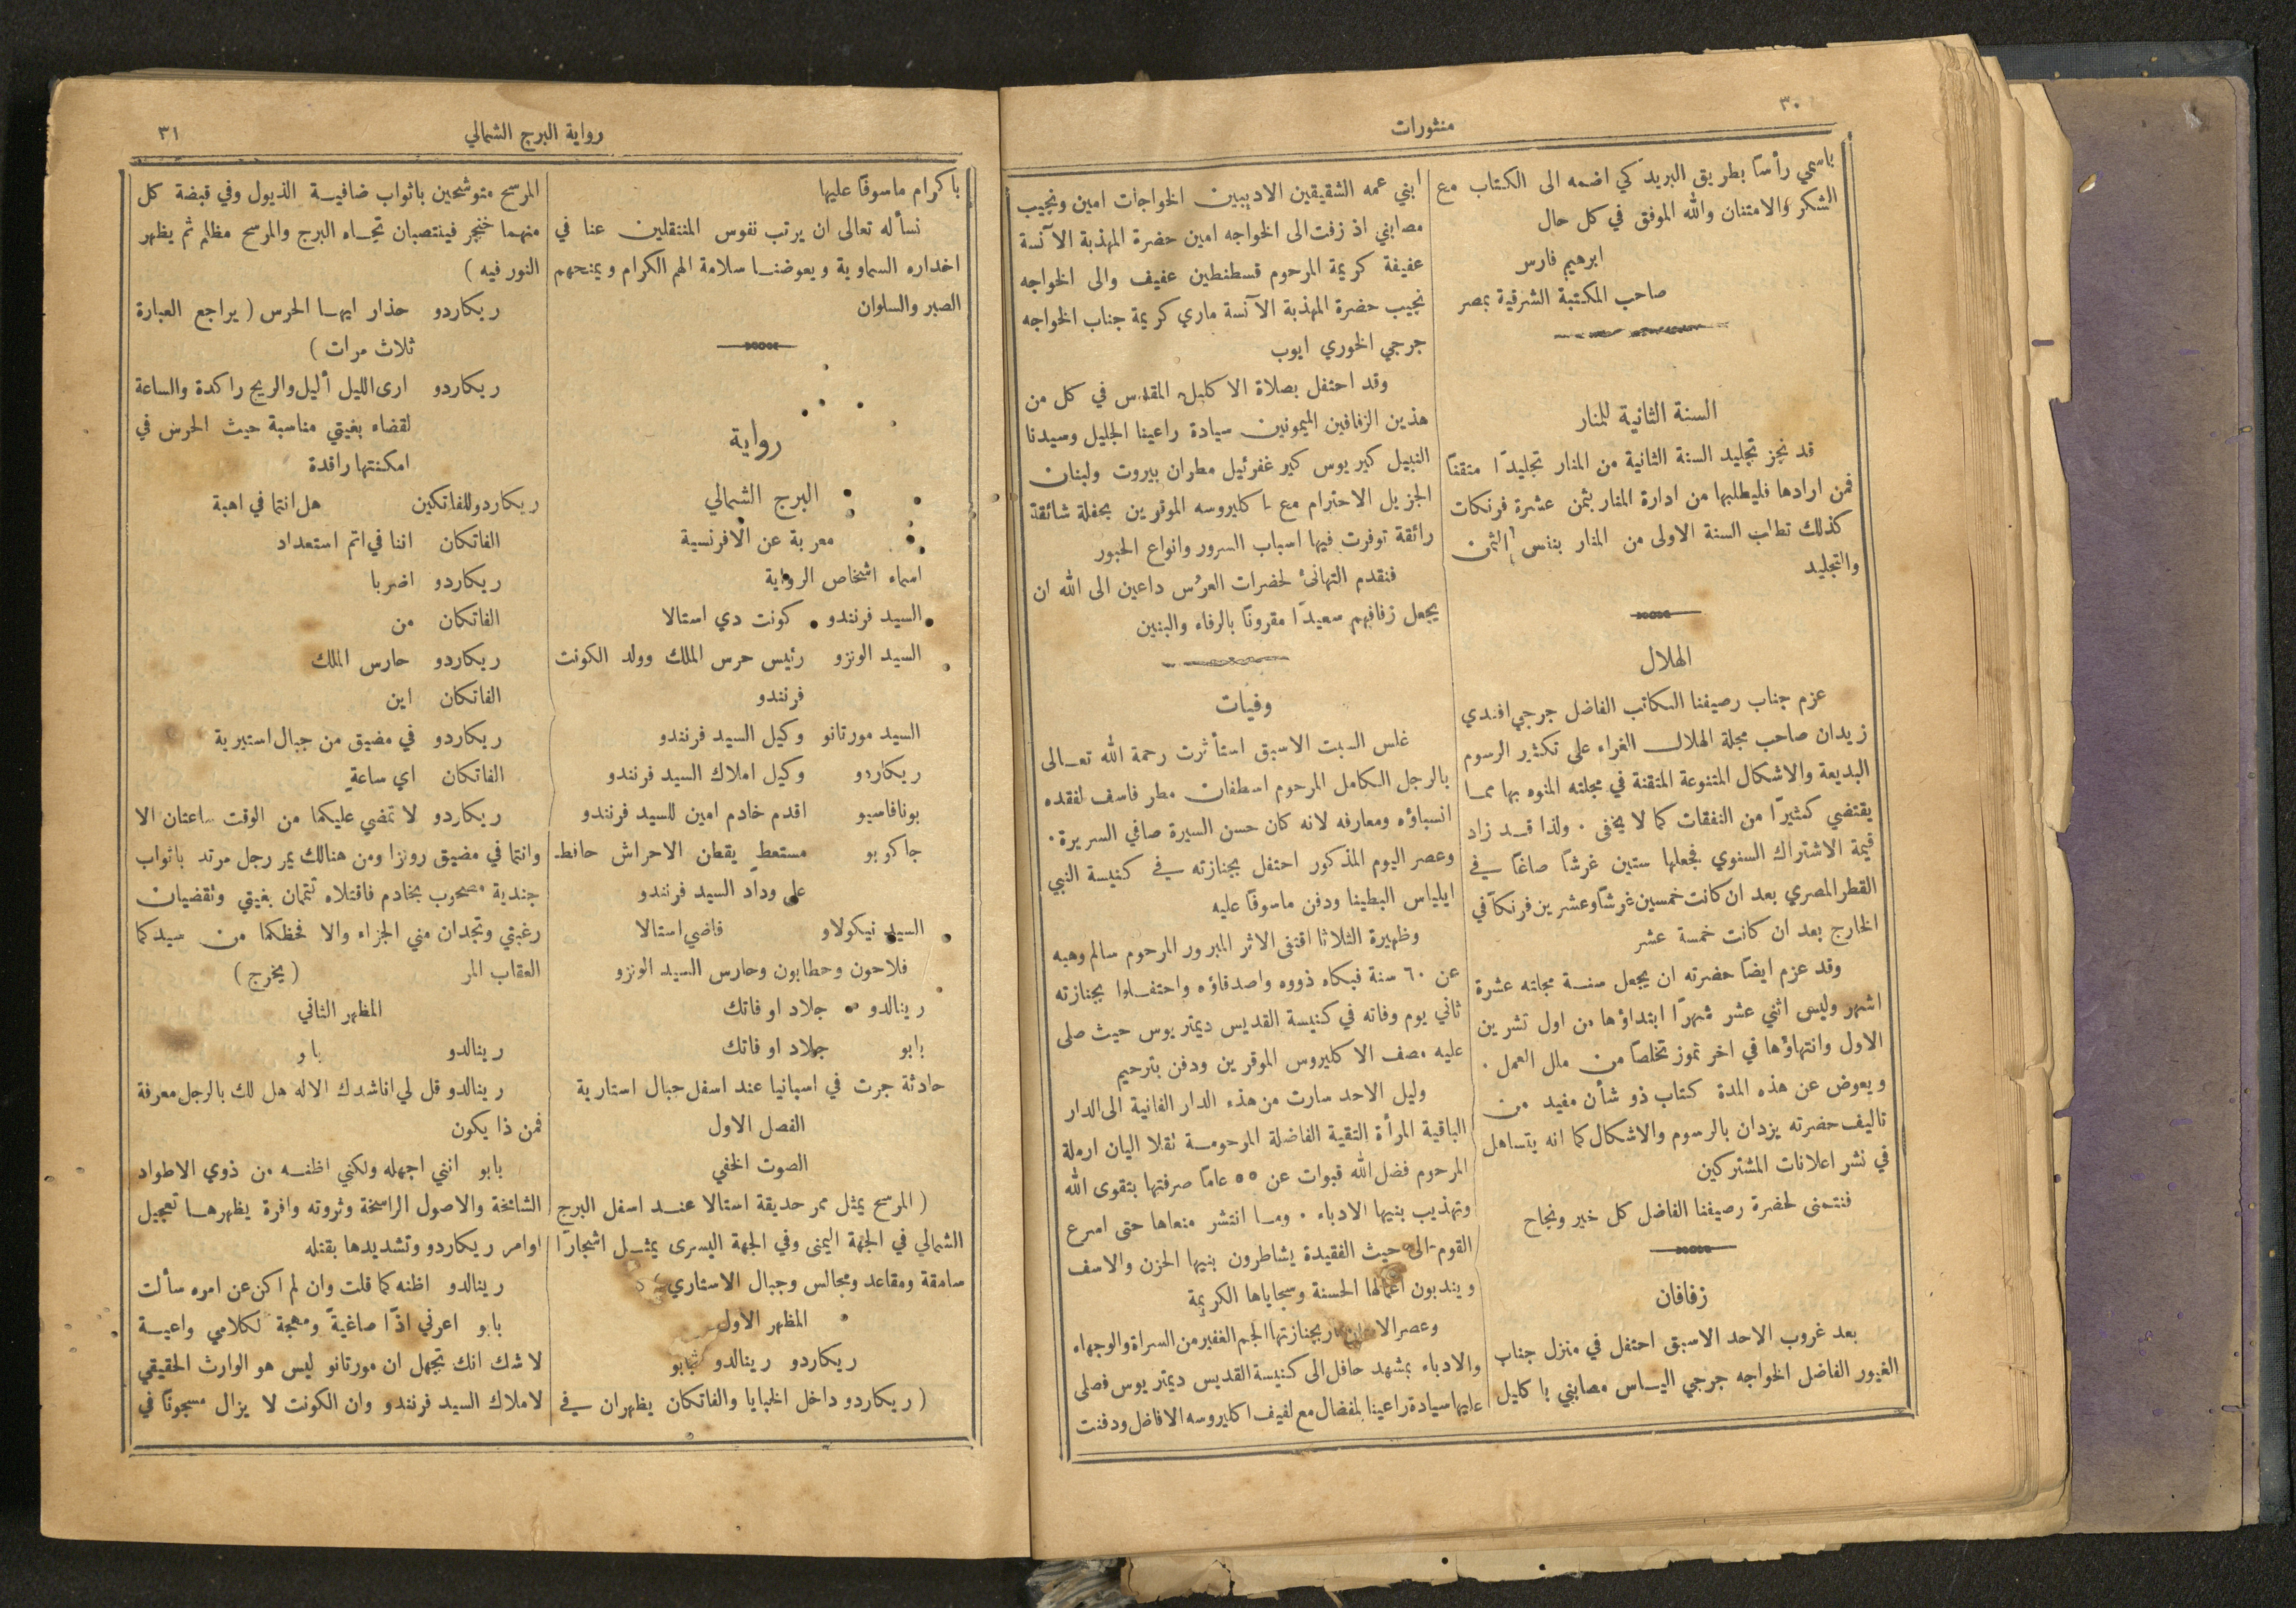 ٣٠
منثورات
باسمي رأساً بطريق البريد كي اضمه الى الكتاب مع
الشكر والامتنان والله الموفق في كل حال
ابرهيم فارس
صاحب المكتبة الشرقية بمصر
السنة الثانية للمنار
قد نجز تجليد السنة الثانية من المنار تجليداً متقناً
فمن ارادها فليطلبها من ادارة المنار بثمن عشرة فرنكات
كذلك تطلب السنة الاولى من المنار بنفس الثمن
والتجليد
الهلال
عزم جناب رصيفنا الكاتب الفاضل جرجي افندي
زيدان صاحب مجلة الهلال الغراء على تكثير الرسوم
البديعة والاشكال المتنوعة المتقنة في مجلته المنوه بها مما
يقتضي كثيراً من النفقات كما لا يخفى . ولذا قد زاد
قيمة الاشتراك السنوي فجعلها ستين غرشاً صاغاً في
القطر المصري بعد ان كانت خمسين غرشاً وعشرين فرنكاً في
الخارج بعد ان كانت خمسة عشر
وقد عزم ايضاً حضرته ان يجعل سنة مجلته عشرة
اشهر وليس اثني عشر شهراً ابتداؤها من اول تشرين
الاول وانتهاؤها في اخر تموز تخلصاً من ملل العمل .
ويعوض عن هذه المدة كتاب ذو شأن مفيد من
تاليف حضرته يزدان بالرسوم والاشكال كما انه يتساهل
في نشر اعلانات المشتركين
فنتمنى لحضرة رصيفنا الفاضل كل خير ونجاح
زفافان
بعد غروب الاحد الاسبق احتفل في منزل جناب
الغيور الفاضل الخواجه جرجي الياس مصابني باكليل
ابني عمه الشقيقين الاديبين الخواجات امين ونجيب
مصابني اذ زفت الى الخواجه امين حضرة المهذبة الآنسة
عفيفة كريمة المرحوم قسطنطين عفيف والى الخواجه
نجيب حضرة المهذبة الآنسة ماري كريمة جناب الخواجه
جرجي الخوري ايوب
وقد احتفل بصلاة الاكليل المقدس في كل من
هذين الزفافين الميمونين سيادة راعينا الجليل وسيدنا
النبيل كيريوس كير غفرئيل مطران بيروت ولبنان
الجزيل الاحترام مع اكليروسه الموقرين بحفلة شائقة
رائقة توفرت فيها اسباب السرور وانواع الحبور
فنقدم التهانئ لحضرات العرس داعين الى الله ان
يجعل زفافهم سعيداً مقروناً بالرفاء والبنين
وفيات
غلس السبت الاسبق استأثرت رحمة الله تعالى
بالرجل الكامل المرحوم اسطفان مطر فاسف لفقده
انسباؤه ومعارفه لانه كان حسن السيرة صافي السريرة .
وعصر اليوم المذكور احتفل بجنازته في كنيسة النبي
ايلياس البطينا ودفن ماسوفاً عليه
وظهيرة الثلاثا اقتفى الاثر المبرور المرحوم سالم وهبه
عن ٦٠ سنة فبكاه ذووه واصدقاؤه واحتفلوا بجنازته
ثاني يوم وفاته في كنيسة القديس ديمتريوس حيث صلى
عليه مصف الاكليروس الموقرين ودفن بترحيم
وليل الاحد سارت من هذه الدار الفانية الى الدار
الباقية المرأة التقية الفاضلة المرحومة نقلا اليان ارملة
المرحوم فضل الله قبوات عن ٥٥ عاماً صرفتها بتقوى الله
وتهذيب بنيها الادباء . وما انتشر منعاها حتى اسرع
القوم الى حيث الفقيدة يشاطرون بنيها الحزن والاسف
ويندبون اعمالها الحسنة وسجاياها الكريمة
وعصر بجنازتها الجم الغفير من السراة والوجهاء
والادباء بمشهد حافل الى كنيسة القديس ديمتريوس فصلى
عليها سيادة راعينا المفضال مع لفيف اكليروسه الافاضل ودفنت
رواية البرج الشمالي
٣١
باكرام ماسوفاً عليها
نسأله تعالى ان يرتب نفوس المنتقلين عنا في
اخداره السماوية ويعوضنا سلامة الهم الكرام ويمنحهم
الصبر والسلوان
رواية
البرج الشمالي
معربة عن الافرنسية
اسماء اشخاص الرواية
السيد فرنندو كونت دي استالا
السيد الونزو رئيس حرس الملك وولد الكونت
فرنندو
السيد مورتانو وكيل السيد فرنندو
ريكاردو وكيل املاك السيد فرنندو
بونافاسيو اقدم خادم امين للسيد فرنندو
جاكوبو مستعطٍ يقطن الاحراش حافظ
على وداد السيد فرنندو
السيد نيكولاو قاضي استالا
فلاحون وحطابون وحارس السيد الونزو
رينالدو جلاد او فاتك
بابو جلاد او فاتك
حادثة جرت في اسبانيا عند اسفل جبال استارية
الفصل الاول
الصوت الخفي
( المرسح يمثل ممر حديقة استالا عند اسفل البرج
الشمالي في الجهة اليمنى وفي الجهة اليسرى يمثل اشجاراً
سامقة ومقاعد ومجالس وجبال الاستاري
المظهر الاول
ريكاردو رينالدو بابو
( ريكاردو داخل الخبايا والفاتكان يظهران في
المرسح متوشحين باثواب ضافية الذيول وفي قبضة كل
منهما خنجر فينتصبان تجاه البرج والمرسح مظلم ثم يظهر
النور فيه )
ريكاردو حذار ايها الحرس ( يراجع العبارة
ثلاث مرات )
ريكاردو ارى الليل أليل والريح راكدة والساعة
لقضاء بغيتي مناسبة حيث الحرس في
امكنتها راقدة
ريكاردو للفاتكين هل انتما في اهبة
الفاتكان اننا في اتم استعداد
ريكاردو اضربا
الفاتكان من
ريكاردو حارس الملك
الفاتكان اين
ريكاردو في مضيق من جبال استيرية
الفاتكان اي ساعةٍ
ريكاردو لا تمضي عليكما من الوقت ساعتان الا
وانتما في مضيق رونزا ومن هنالك يمر رجل مرتد باثواب
جندية مصحوب بخادم فاقتلاه تتمان بغيتي وتقضيان
رغبتي وتجدان مني الجزاء والا فحظكما من سيدكما
العقاب المر ( يخرج )
المظهر الثاني
رينالدو با و
رينالدو قل لي اناشدك الاله هل لك بالرجل معرفة
فمن ذا يكون
بابو انني اجهله ولكني اظنه من ذوي الاطواد
الشامخة والاصول الراسخة وثروته وافرة يظهرها تعجيل
اوامر ريكاردو وتشديدها بقتله
رينالدو اظنه كما قلت وان لم اكن عن امره سألت
بابو اعرني اذناً صاغيةً ومهجة لكلامي واعية
لا شك انك تجهل ان مورتانو ليس هو الوارث الحقيقي
لاملاك السيد فرنندو وان الكونت لا يزال مسجوناً في